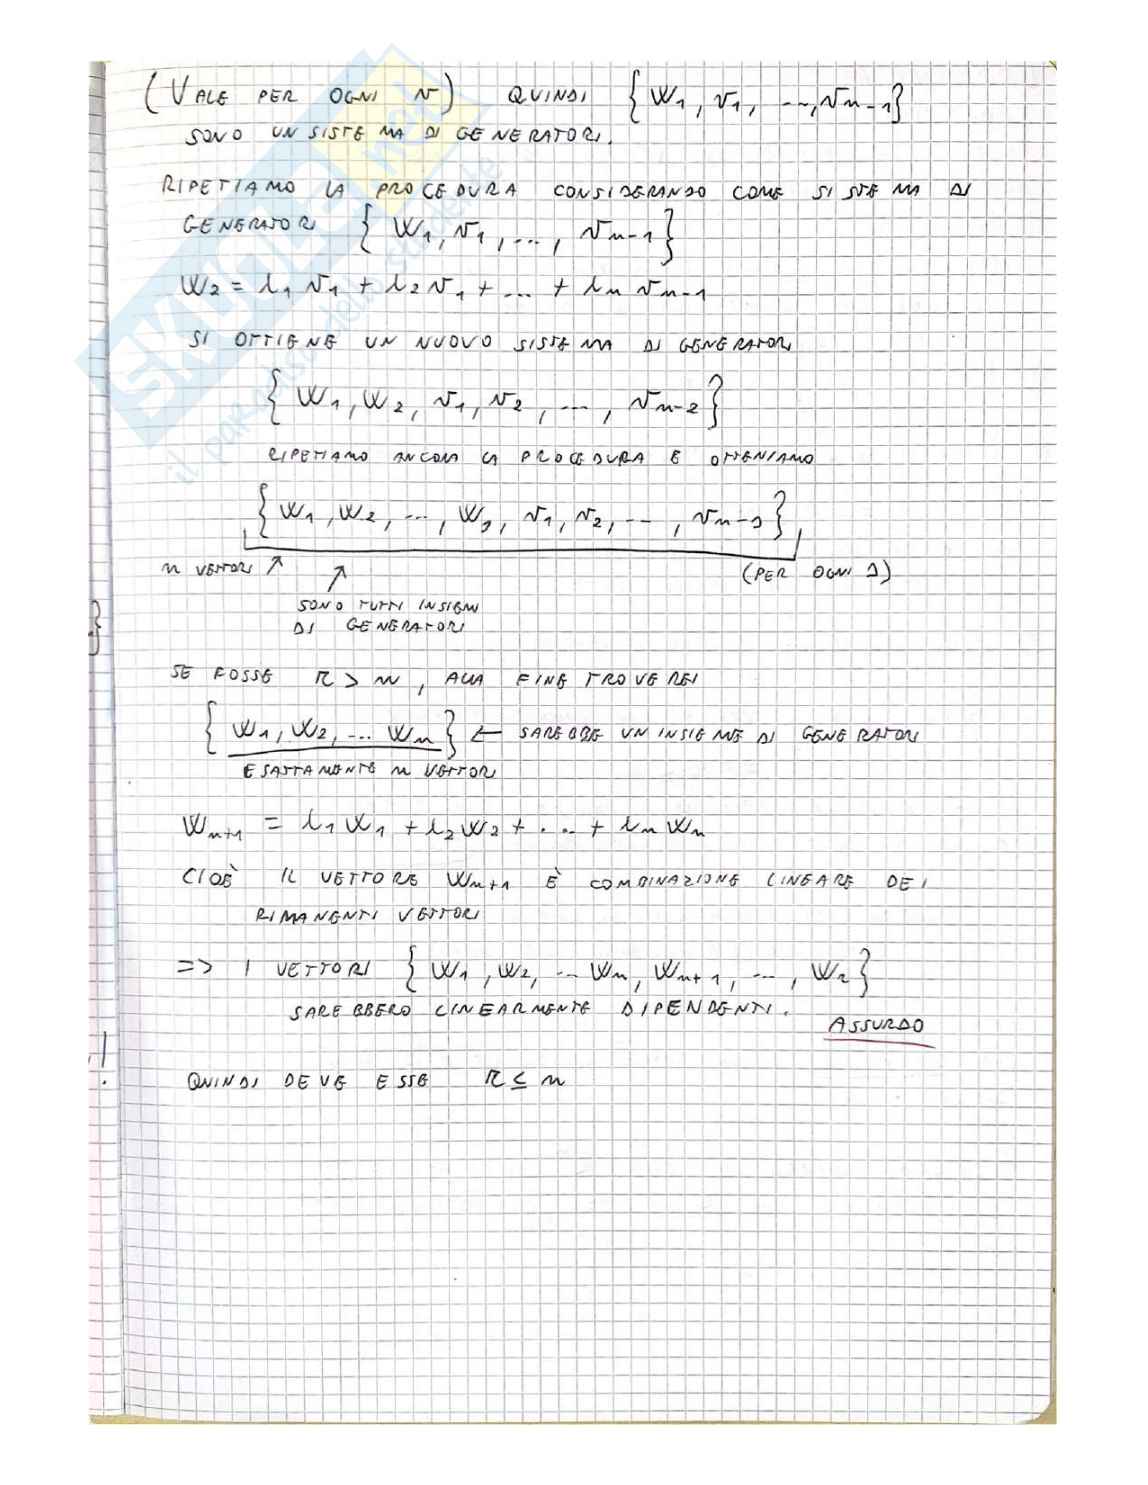 (VALE PER OGNI v) QUINDI {W₁, v₁, ..., vₙ₋₁}
SONO UN SISTEMA DI GENERATORI.
RIPETIAMO LA PROCEDURA CONSIDERANDO COME SISTEMA DI
GENERATORI {W₁, v₁, ..., vₙ₋₁}
W₂ = λ₁ v₁ + λ₂ v₁ + ... + λₙ vₙ₋₁
SI OTTIENE UN NUOVO SISTEMA DI GENERATORI
{W₁, W₂, v₁, v₂, ..., vₙ₋₂}
RIPETIAMO ANCORA LA PROCEDURA E OTTENIAMO
{W₁, W₂, ..., Wⱼ, v₁, v₂, ..., vₙ₋ⱼ}
n VETTORI ↗ (PER OGNI J)
↗
SONO TUTTI INSIEMI
DI GENERATORI
SE FOSSE r > n, ALLA FINE TROVEREI
{W₁, W₂, ... Wₙ} ← SAREBBE UN INSIEME DI GENERATORI
ESATTAMENTE n VETTORI
Wₙ₊₁ = λ₁ W₁ + λ₂ W₂ + ... + λₙ Wₙ
CIOÈ IL VETTORE Wₙ₊₁ È COMBINAZIONE LINEARE DEI
RIMANENTI VETTORI
=> I VETTORI {W₁, W₂, ... Wₙ, Wₙ₊₁, ..., Wᵣ}
SAREBBERO LINEARMENTE DIPENDENTI.
ASSURDO
QUINDI DEVE ESSE r ≤ n
SKUOLA.net